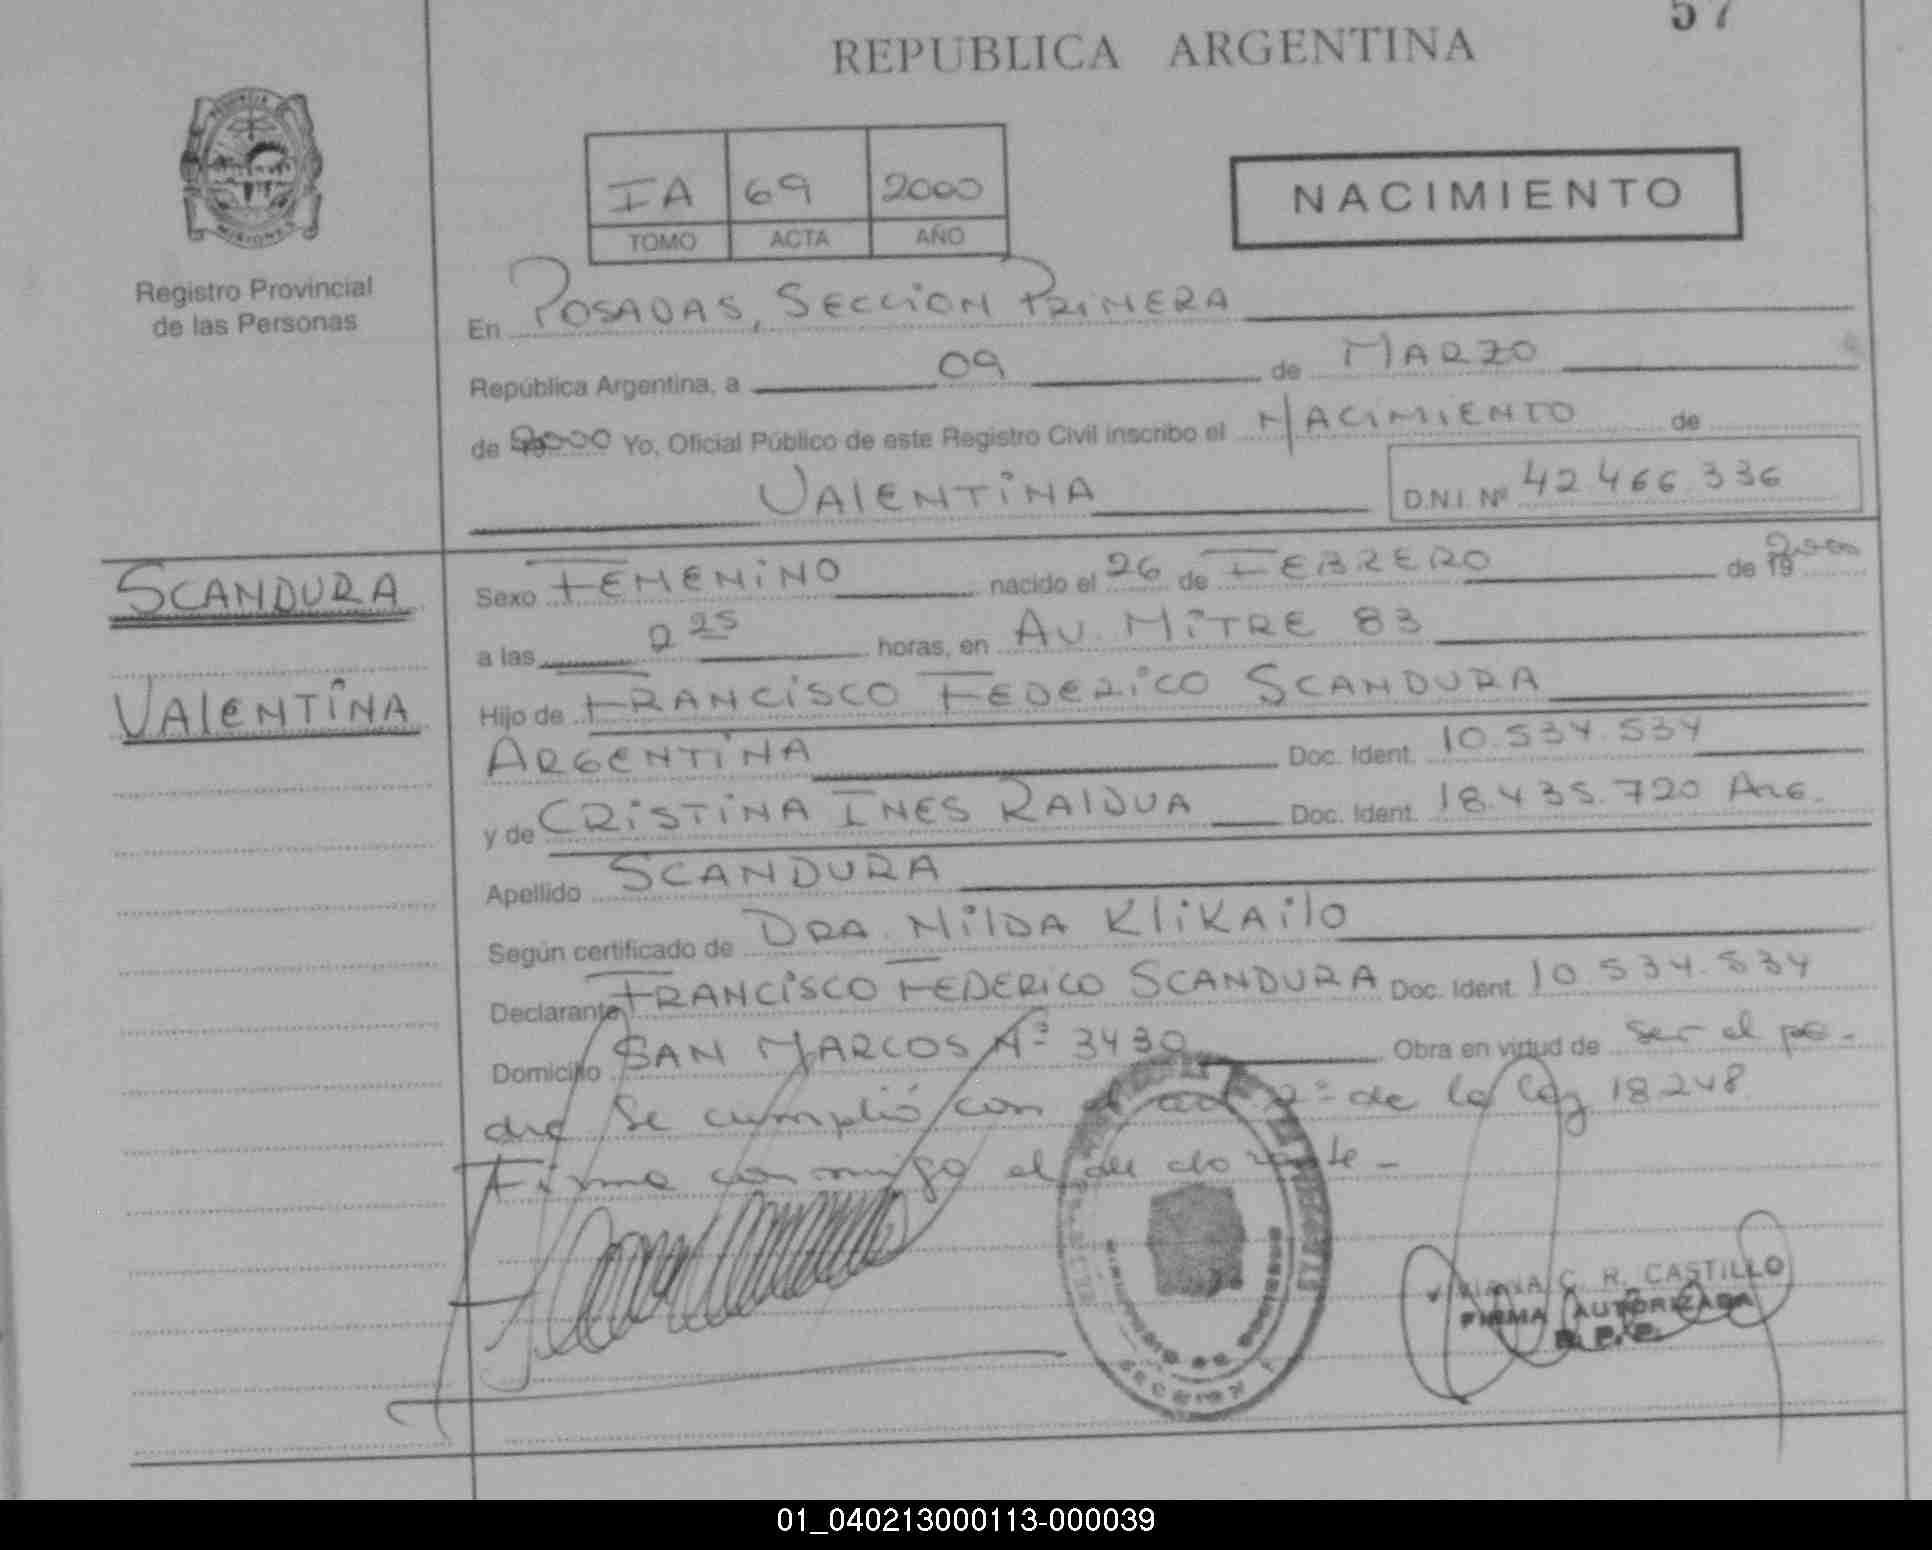 57
REPUBLICA ARGENTINA
PROVINCIA DE
MISIONES
Registro Provincial
de las Personas
IA 69 2000
TOMO ACTA AÑO
NACIMIENTO
En POSADAS, SECCION PRIMERA
República Argentina, a 09 de MARZO
de 2000 Yo, Oficial Público de este Registro Civil inscribo el NACIMIENTO de
VALENTINA D.N.I. Nº 42 466 336
SCANDURA
VALENTINA
Sexo FEMENINO nacido el 26 de FEBRERO de 19 2000
a las 2 25 horas, en AV. MITRE 83
Hijo de FRANCISCO FEDERICO SCANDURA
ARGENTINA Doc. Ident. 10.534.534
y de CRISTINA INES RALDUA Doc. Ident. 18.435.720 ARG.
Apellido SCANDURA
Según certificado de DRA. NILDA KLIKAILO
Declarante FRANCISCO FEDERICO SCANDURA Doc. Ident. 10.534.534
Domicilio SAN MARCOS Nº 3430 Obra en virtud de ser el pa-
dre Se cumplió con el art. 2º de la ley 18248
Firma conmigo el declarante -
SECCION 1
C. R. CASTILLO
FIRMA AUTORIZADA
R. P. P.
01_040213000113-000039